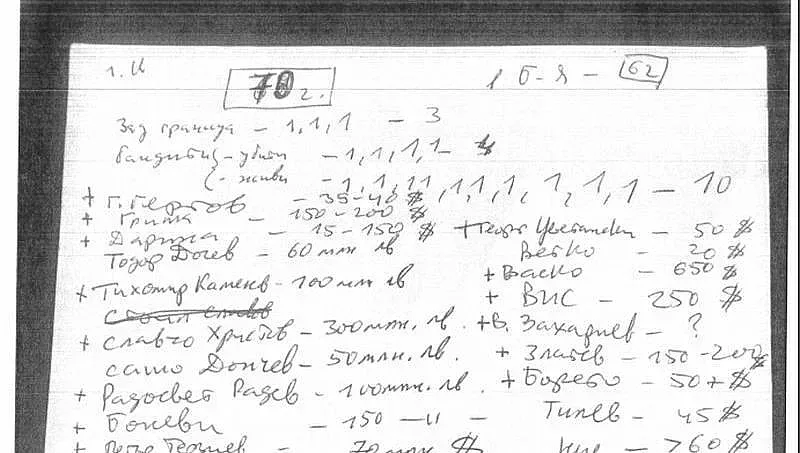 1. И 70 г. 1 Б-я - 62
Зад граница - 1, 1, 1 - 3
бандити - убити - 1, 1, 1, 1 -
- живи - 1, 1, 11, 1, 1, 1, 1, 1, 1 - 10
+ Г. Гергов - 35-40 $
+ Гриша - 150-200 $
+ Дарина - 15-150 $ + Георги Цветански - 50 $
Тодор Дочев - 60 млн лв Ветко - 20 $
+ Тихомир Каменов - 100 млн лв + Васко - 650 $
+ ВИС - 250 $
+ Славчо Христов - 300 млн. лв. + В. Захариев - ?
сашо Дончев - 50 млн. лв. + Златев - 150-200 $
+ Радосвет Радев - 100 млн. лв. + Борето - 50 + $
+ Боневи - 150 -11- Тилев - 45 $
+ Петър - 70 млн $ - 760 $